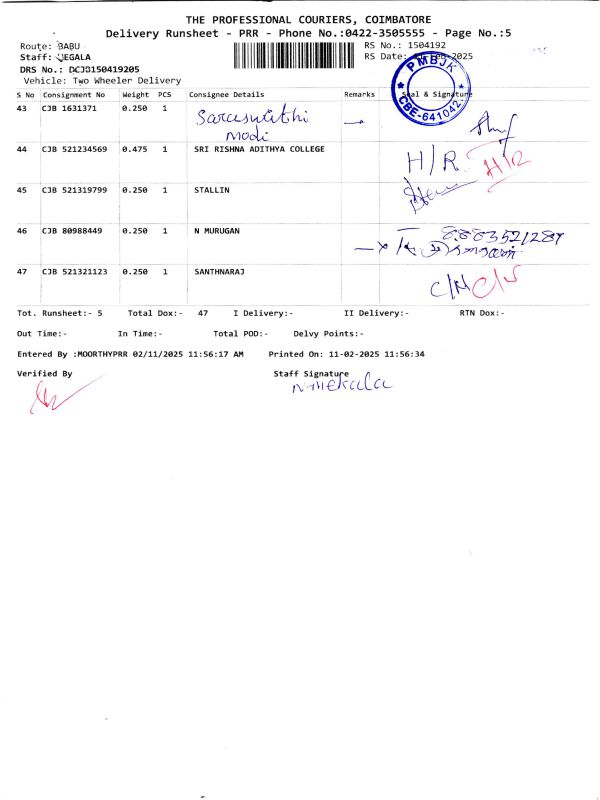 THE PROFESSIONAL COURIERS, COIMBATORE
Delivery Runsheet - PRR - Phone No.:0422-3505555 - Page No.:5
Route: BABU
RS No.: 1504192
Staff: JEGALA
RS Date: -2025
DRS No.: DCJB150419205
Vehicle: Two Wheeler Delivery
PMBJK
CBE-641042.
S No Consignment No Weight PCS Consignee Details Remarks Seal & Signature
43 CJB 1631371 0.250 1 modi
44 CJB 521234569 0.475 1 SRI RISHNA ADITHYA COLLEGE H/R H/R
45 CJB 521319799 0.250 1 STALLIN
46 CJB 80988449 0.250 1 N MURUGAN
47 CJB 521321123 0.250 1 SANTHNARAJ C/N C/N
Tot. Runsheet:- 5 Total Dox:- 47 I Delivery:- II Delivery:- RTN Dox:-
Out Time:- In Time:- Total POD:- Delvy Points:-
Entered By :MOORTHYPRR 02/11/2025 11:56:17 AM Printed On: 11-02-2025 11:56:34
Verified By Staff Signature
N.mekala